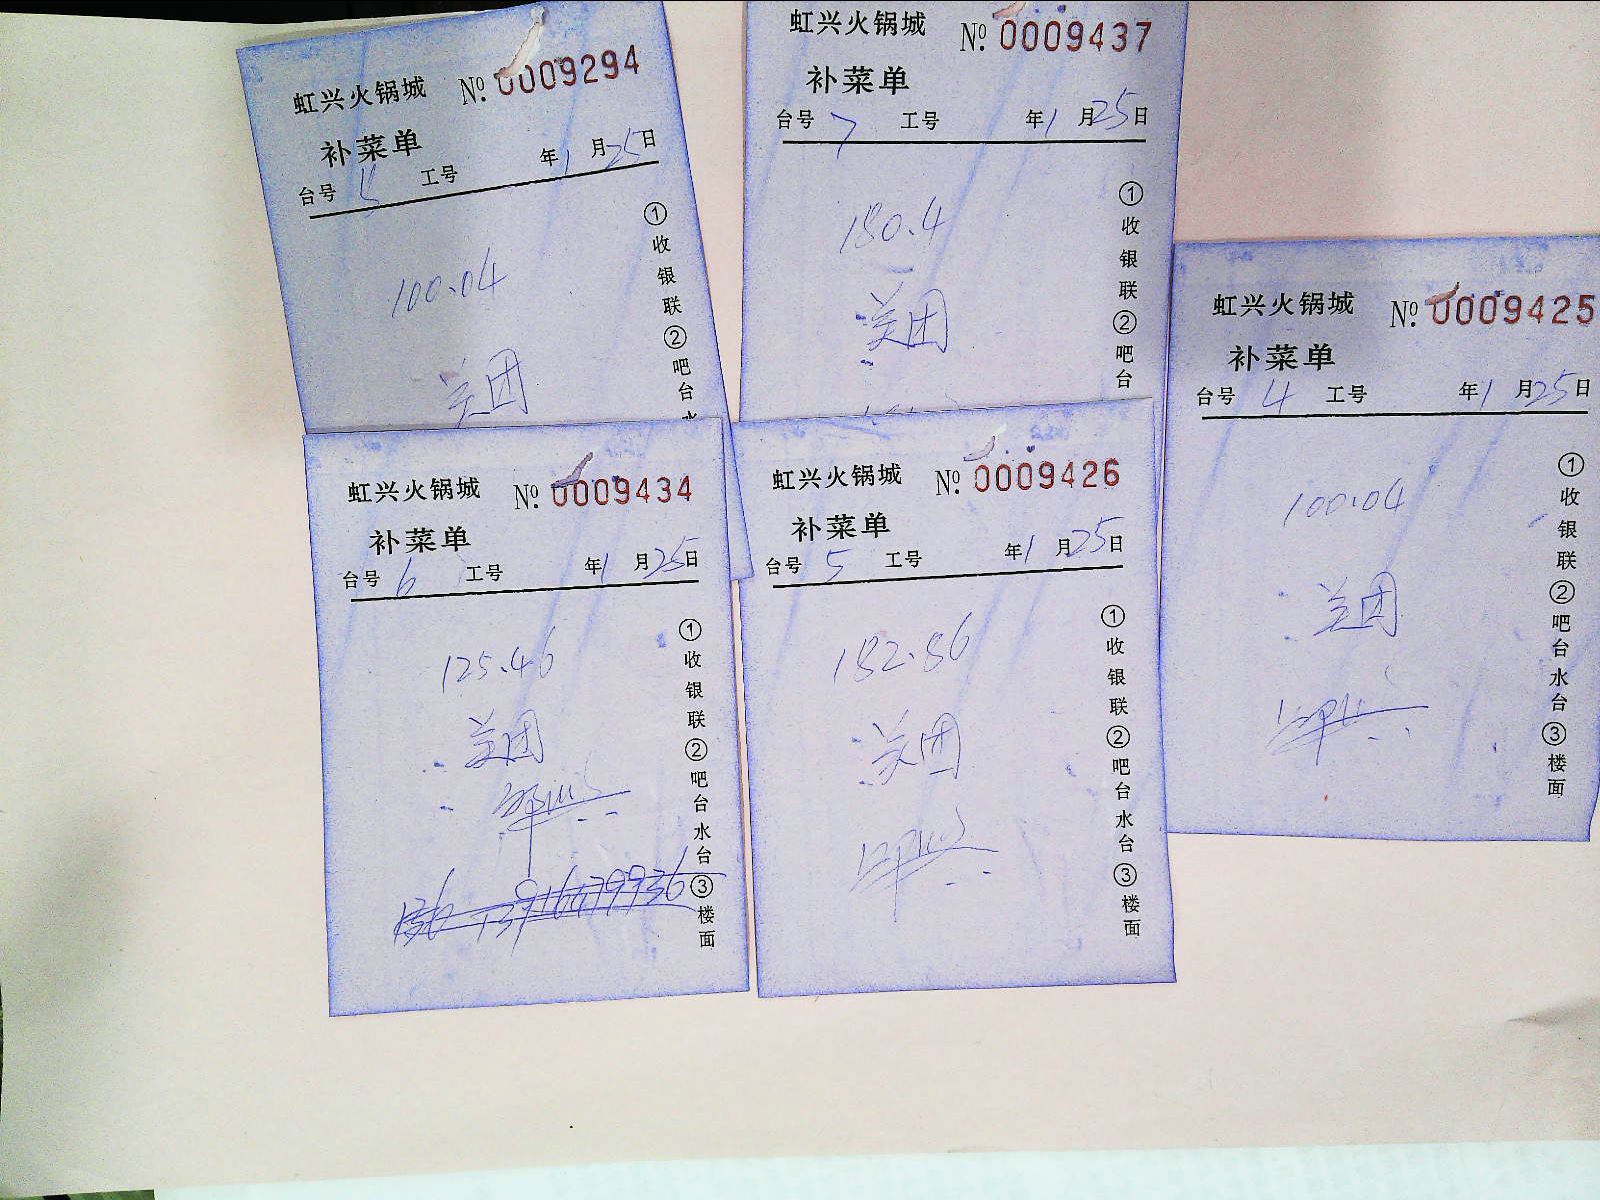 虹兴火锅城 No. 0009294
补菜单
台号 5 工号 年1月25日
100.04
美团
①收银联②吧台水
虹兴火锅城 No. 0009437
补菜单
台号 7 工号 年1月25日
180.4
美团
①收银联②吧台
虹兴火锅城 No. 0009425
补菜单
台号 4 工号 年1月25日
100.04
美团
①收银联②吧台水台③楼面
虹兴火锅城 No. 0009434
补菜单
台号 6 工号 年1月25日
125.46
美团
①收银联②吧台水台③楼面
虹兴火锅城 No. 0009426
补菜单
台号 5 工号 年1月25日
182.86
美团
①收银联②吧台水台③楼面